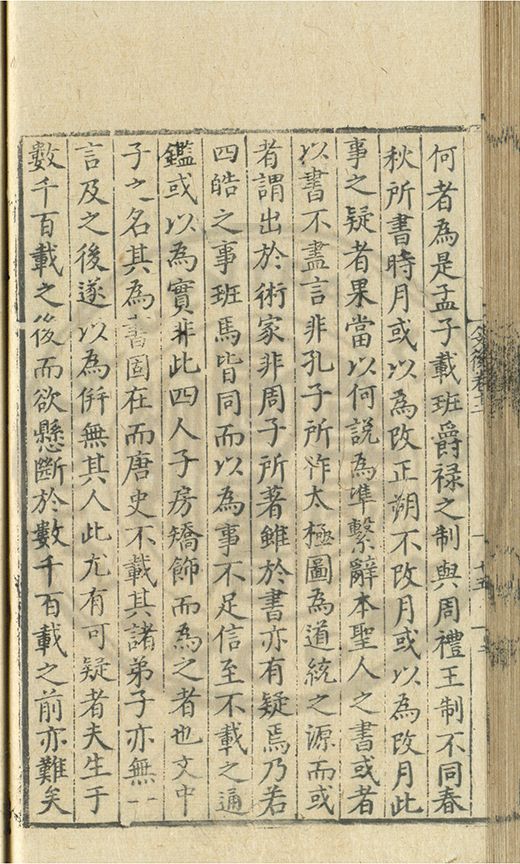 何者為是孟子載班爵祿之制與周禮王制不同春
秋所書時月或以為改正朔不改月或以為改月此
事之疑者果當以何說為準繫辭本聖人之書或者
以書不盡言非孔子所作太極圖為道統之源而或
者謂出於術家非周子所著雖於書亦有疑焉乃若
四皓之事班馬皆同而以為事不足信至不載之通
鑑或以為實非此四人子房矯飾而為之者也文中
子之名其為書固在而唐史不載其諸弟子亦無一
言及之後遂以為併無其人此尤有可疑者夫生于
數千百載之後而欲懸斷於數千百載之前亦難矣